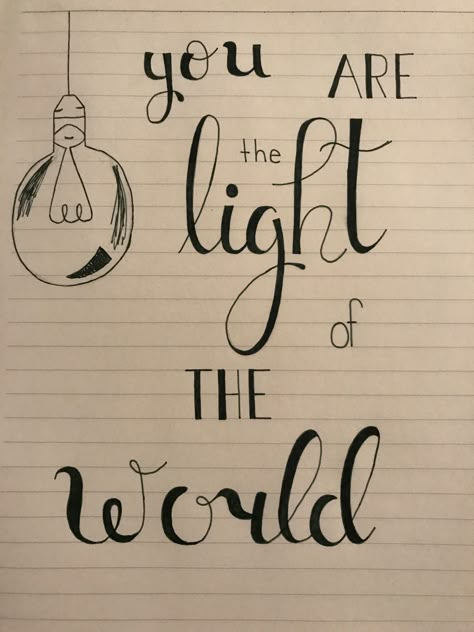 you ARE
the
light
of
THE
world